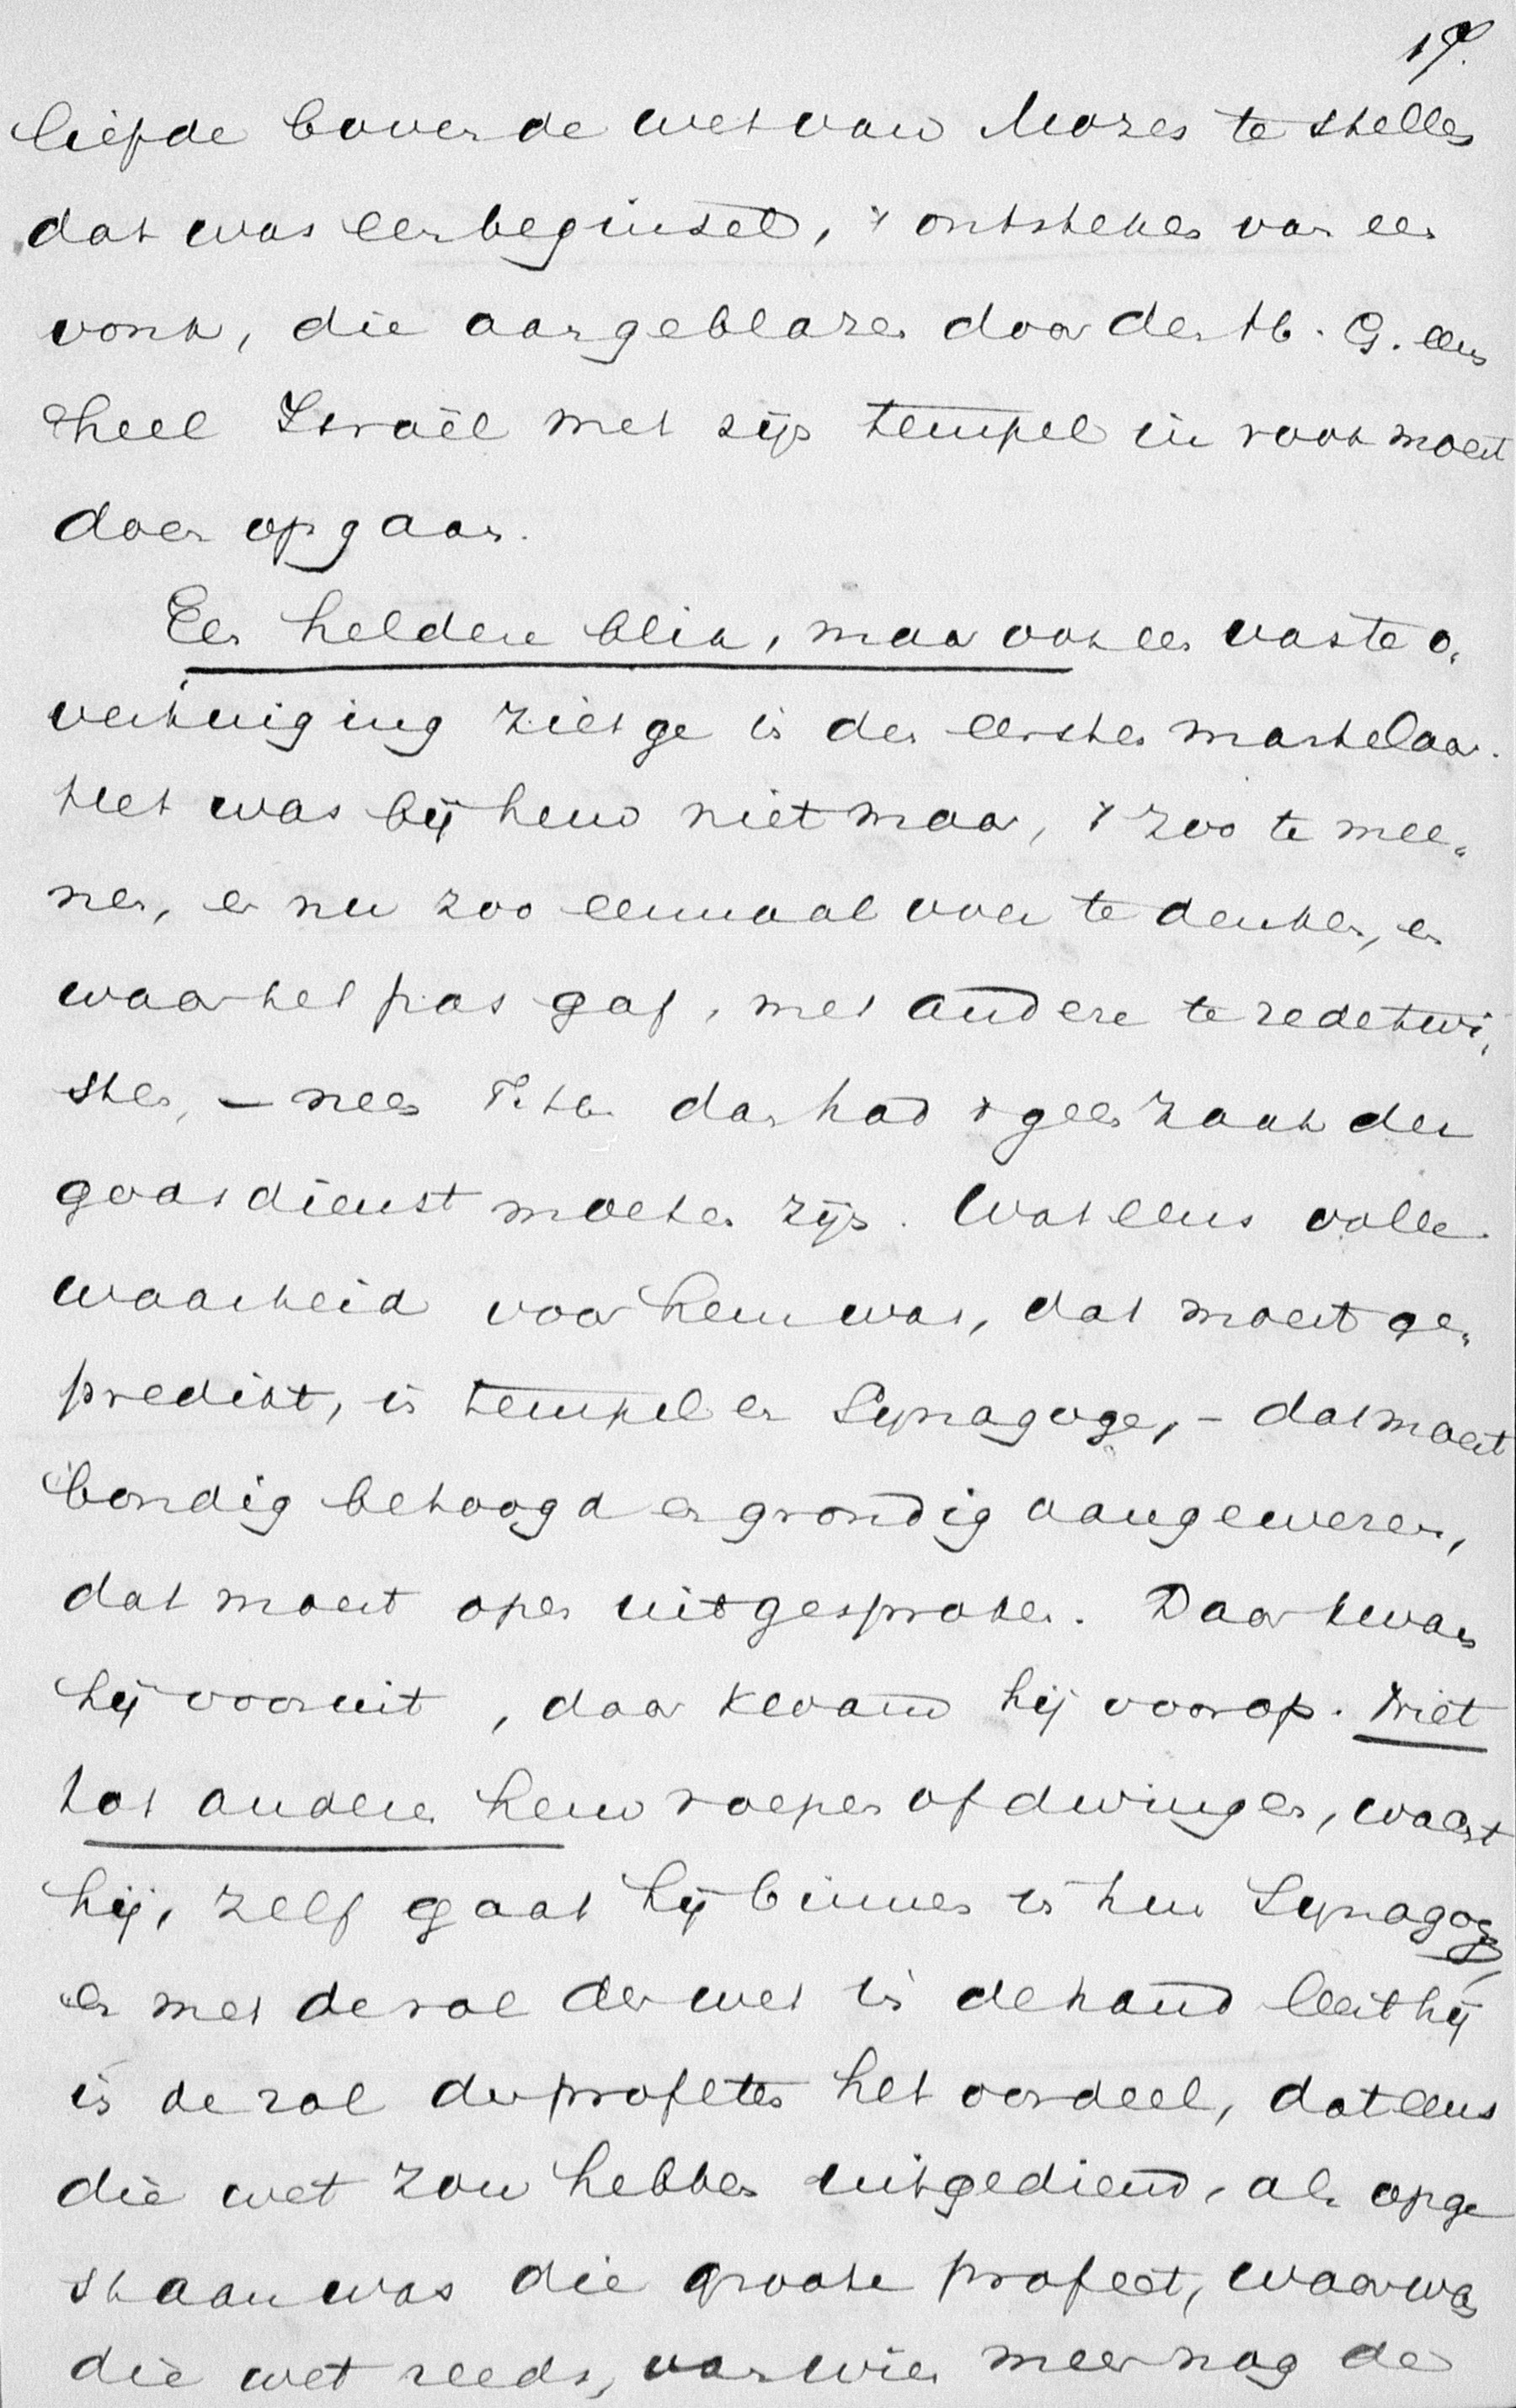 liefde boven de wet van Mozes te stellen
dat was een beginsel, 't ontsteken van een
vonk, die aangeblazen door den H. G. eens
heel Israël met zijn tempel in rook moest
doen opgaan.
Een heldere blik, maar ook een vaste o„
vertuiging ziet ge in den eersten martelaar.
Het was bij hem niet maar, 't zoo te mee„
nen, er nu zoo eenmaal over te denken, en
waar het pas gaf, met andere te redetwi„
sten, — neen dan had 't geen zaak der
godsdienst moeten zijn. Wat eens volle
waarheid voor hem was, dat moest ge„
predikt, in tempel en Synagoge, – dat moest
bondig betoogd en grondig aangewezen,
dat moest open uitgesproken. Daar kwam
hij vooruit, daar kwam hij voorop. Niet
tot anderen hem roepen of dwingen, waar't
hij, zelf gaat hij binnen in hun Synagoge
en met de rol der wet in de hand leest hij
in de rol der profeten het oordeel, dat eens
die wet zou hebben uitgediend, als opge
staan was die groote profeet, waarvan
die wet reeds, van wien meer nog de